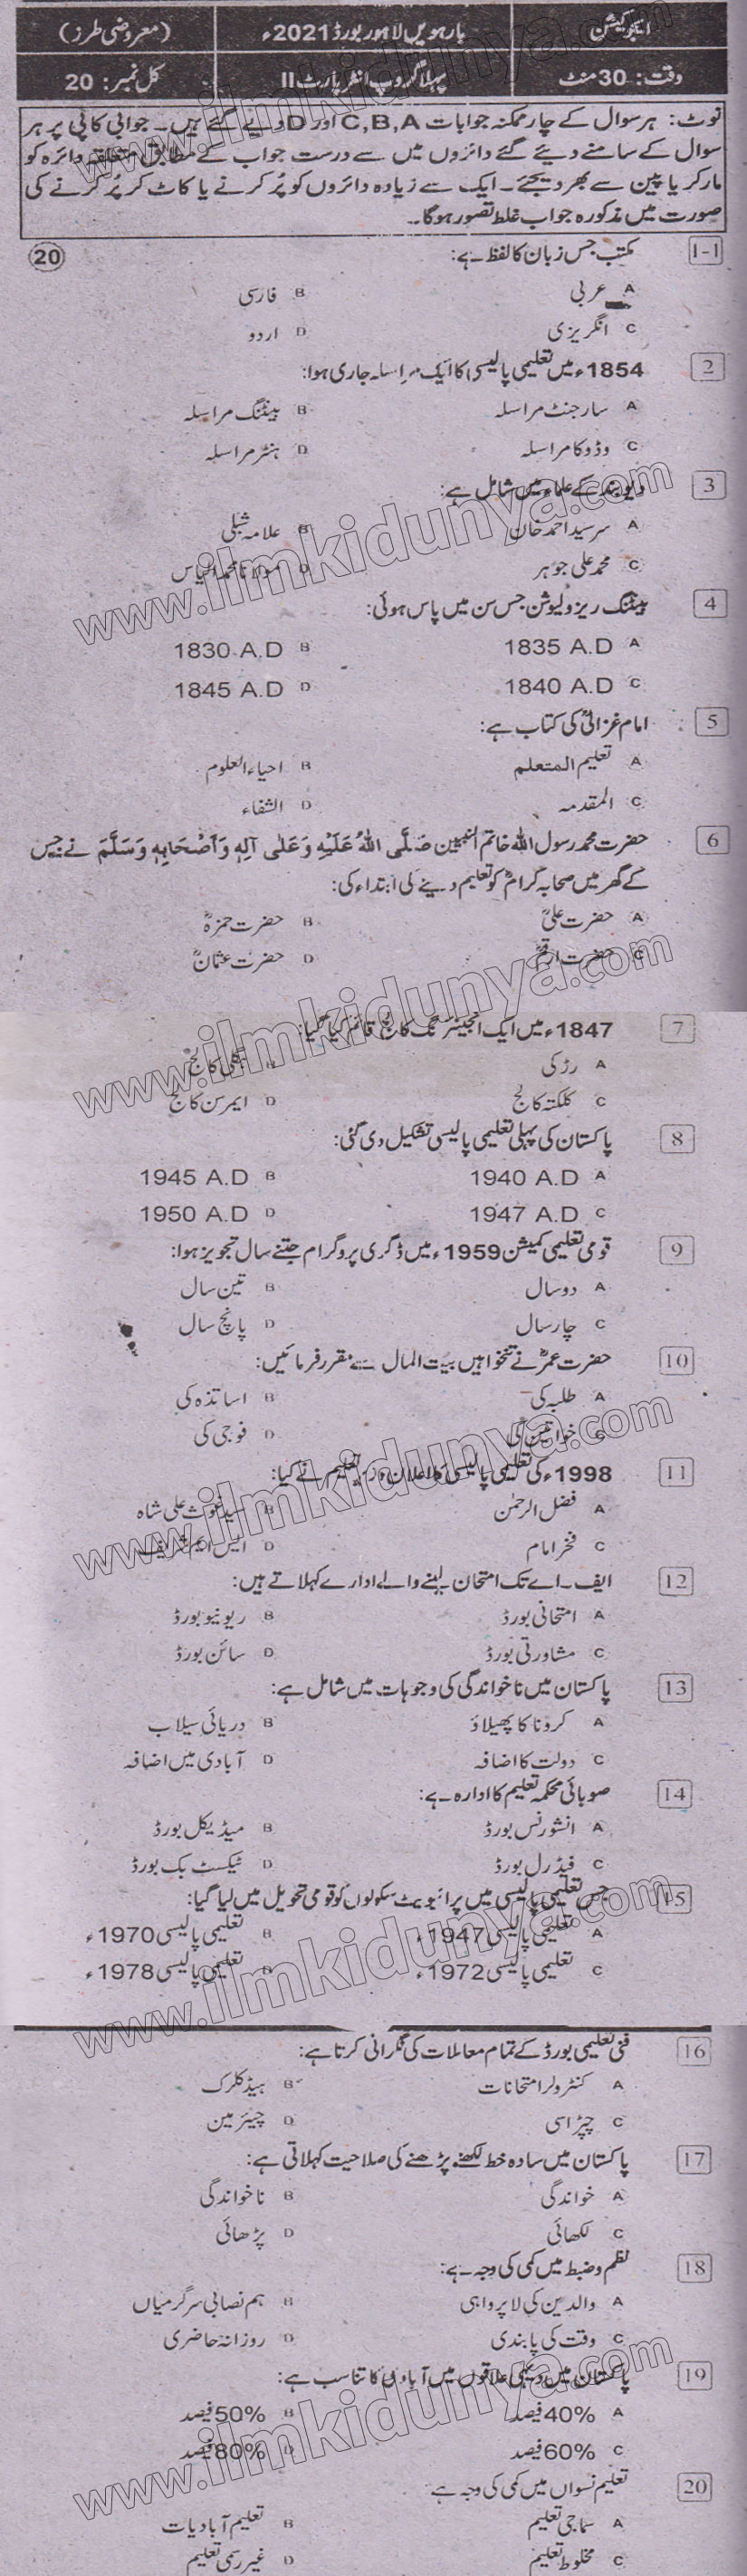 ایجوکیشن بارہویں لاہور بورڈ 2021ء (معروضی طرز)
وقت: 30 منٹ پہلا گروپ انٹر پارٹ II کل نمبر: 20
نوٹ: ہر سوال کے چار ممکنہ جوابات C,B,A اور D دیے گئے ہیں۔ جوابی کاپی پر ہر
سوال کے سامنے دیئے گئے دائروں میں سے درست جواب کے مطابق متعلقہ دائرہ کو
مارکر یا پین سے بھر دیجئے۔ ایک سے زیادہ دائروں کو پُر کرنے یا کاٹ کر پُر کرنے کی
صورت میں مذکورہ جواب غلط تصور ہوگا۔
1-1 مکتب جس زبان کا لفظ ہے: 20
A عربی B فارسی
C انگریزی D اردو
2 1854ء میں تعلیمی پالیسی کا ایک مراسلہ جاری ہوا:
A سارجنٹ مراسلہ B بینٹنگ مراسلہ
C وڈ وکا مراسلہ D ہنٹر مراسلہ
3 دیوبند کے علماء میں شامل ہے:
A سرسید احمد خان B علامہ شبلی
C محمد علی جوہر D مولانا محمد الیاس
4 بینٹنگ ریزولیوشن جس سن میں پاس ہوئی:
A 1835 A.D B 1830 A.D
C 1840 A.D D 1845 A.D
5 امام غزالیؒ کی کتاب ہے:
A تعلیم المتعلم B احیاء العلوم
C المقدمہ D الشفاء
6 حضرت محمد رسول اللہ خاتم النبیین صَلَّی اللہُ عَلَیْہِ وَعَلٰی آلِہٖ وَاَصْحَابِہٖ وَسَلَّمَ نے جس
کے گھر میں صحابہ کرامؓ کو تعلیم دینے کی ابتداء کی:
A حضرت علیؓ B حضرت حمزہؓ
C حضرت ارقمؓ D حضرت عثمانؓ
7 1847ء میں ایک انجینئرنگ کالج قائم کیا گیا:
A رڑکی B ہگلی کالج
C کلکتہ کالج D ایمرسن کالج
8 پاکستان کی پہلی تعلیمی پالیسی تشکیل دی گئی:
A 1940 A.D B 1945 A.D
C 1947 A.D D 1950 A.D
9 قومی تعلیمی کمیشن 1959ء میں ڈگری پروگرام جتنے سال تجویز ہوا:
A دو سال B تین سال
C چار سال D پانچ سال
10 حضرت عمرؓ نے تنخواہیں بیت المال سے مقرر فرمائیں:
A طلبہ کی B اساتذہ کی
C خواتین کی D فوجی کی
11 1998ء کی تعلیمی پالیسی کا اعلان وزیر تعلیم نے کیا:
A فضل الرحمٰن B سید غوث علی شاہ
C فخر امام D ایس ایم شریف
12 ایف۔اے تک امتحان لینے والے ادارے کہلاتے ہیں:
A امتحانی بورڈ B ریونیو بورڈ
C مشاورتی بورڈ D سائن بورڈ
13 پاکستان میں ناخواندگی کی وجوہات میں شامل ہے:
A کرونا کا پھیلاؤ B دریائی سیلاب
C دولت کا اضافہ D آبادی میں اضافہ
14 صوبائی محکمہ تعلیم کا ادارہ ہے:
A انشورنس بورڈ B میڈیکل بورڈ
C فیڈرل بورڈ D ٹیکسٹ بک بورڈ
15 جس تعلیمی پالیسی میں پرائیویٹ سکولوں کو قومی تحویل میں لیا گیا:
A تعلیمی پالیسی 1947ء B تعلیمی پالیسی 1970ء
C تعلیمی پالیسی 1972ء D تعلیمی پالیسی 1978ء
16 فنی تعلیمی بورڈ کے تمام معاملات کی نگرانی کرتا ہے:
A کنٹرولر امتحانات B ہیڈ کلرک
C چپڑاسی D چیئرمین
17 پاکستان میں سادہ خط لکھنے پڑھنے کی صلاحیت کہلاتی ہے:
A خواندگی B ناخواندگی
C لکھائی D پڑھائی
18 نظم و ضبط میں کمی کی وجہ ہے:
A والدین کی لاپرواہی B ہم نصابی سرگرمیاں
C وقت کی پابندی D روزانہ حاضری
19 پاکستان میں دیہی علاقوں میں آبادی کا تناسب ہے:
A 40% فیصد B 50% فیصد
C 60% فیصد D 80% فیصد
20 تعلیم نسواں میں کمی کی وجہ ہے
A سماجی تعلیم B تعلیم آبادیات
C مخلوط تعلیم D غیر رسمی تعلیم
www.ilmkidunya.com
www.ilmkidunya.com
www.ilmkidunya.com
www.ilmkidunya.com
www.ilmkidunya.com
www.ilmkidunya.com